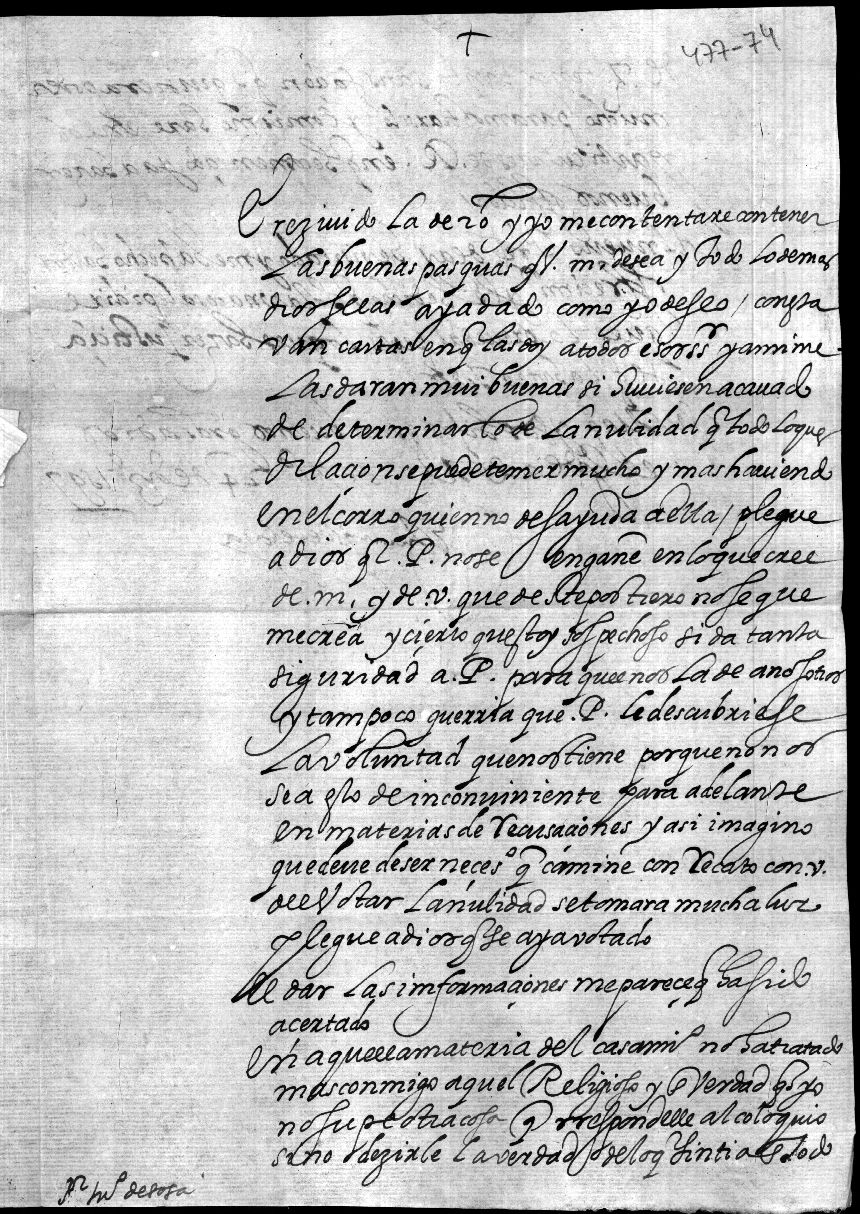 +
477-74
Rezivido La de 20 y yo me contentare con tener
Las buenas pasquas q V. m. desea y todo Lo demas
dios se las aya dado como yo deseo / con esta
van cartas en q las doy a todos esos ss.res y a mi me
Las daran mui buenas si Vuiesen acauado
de determinar lo de La nulidad q todo lo que es
dilacion se puede temer mucho y mas hauiendo
en el corro quien no des ayuda a ella / plegue
a dios q .P. no se engañe en lo que cree
de .m. y de .v. que deste portiero no se que
me crea y cierto que estoy sospechoso si da tanta
siguridad a .P. para que e nos La de a nosotros
y tampoco querria que .P. le descubriese
La voluntad que nos tiene por que no nos
sea esto de inconviniente para adelante
en materias de recusaciones y asi imagino
que deue de ser neces.o q camine con recato con .v.
de el Votar La nulidad se tomara mucha luz
plegue a dios q se aya votado
de dar Las imformaciones me pareçe q ha sido
acertado
En aquella materia del casami.o no ha tratado
mas conmigo aquel Religioso y verdad q yo
no supe otra cosa q rresponde lle al coloquio
sino dezirle la verdad de lo q sintia todo
P.r Ju.o de sosa